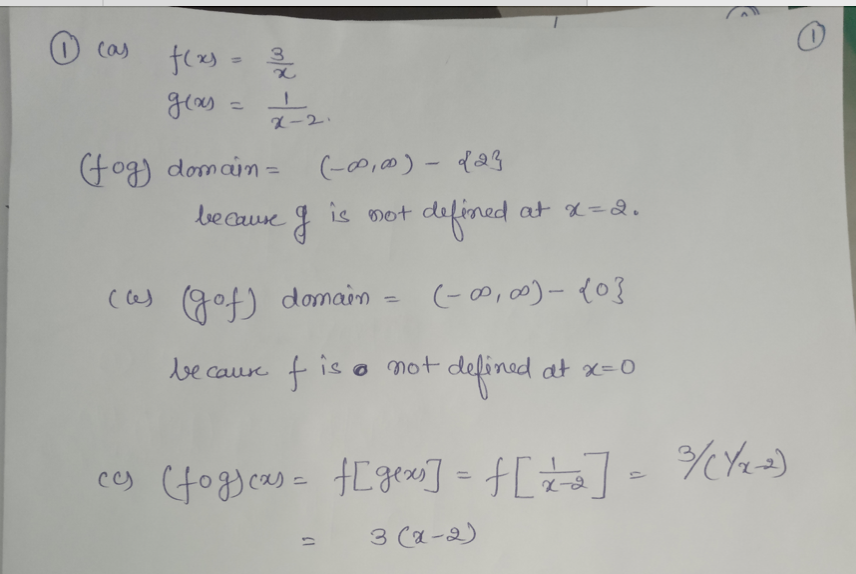 ① (a) f(x) = 3/x ①
g(x) = 1/(x-2).
(fog) domain = (-∞,∞) - {2}
because g is not defined at x=2.
(b) (gof) domain = (-∞,∞) - {0}
because f is not defined at x=0
(c) (fog)(x) = f[g(x)] = f[1/(x-2)] = 3/(1/x-2)
= 3(x-2)